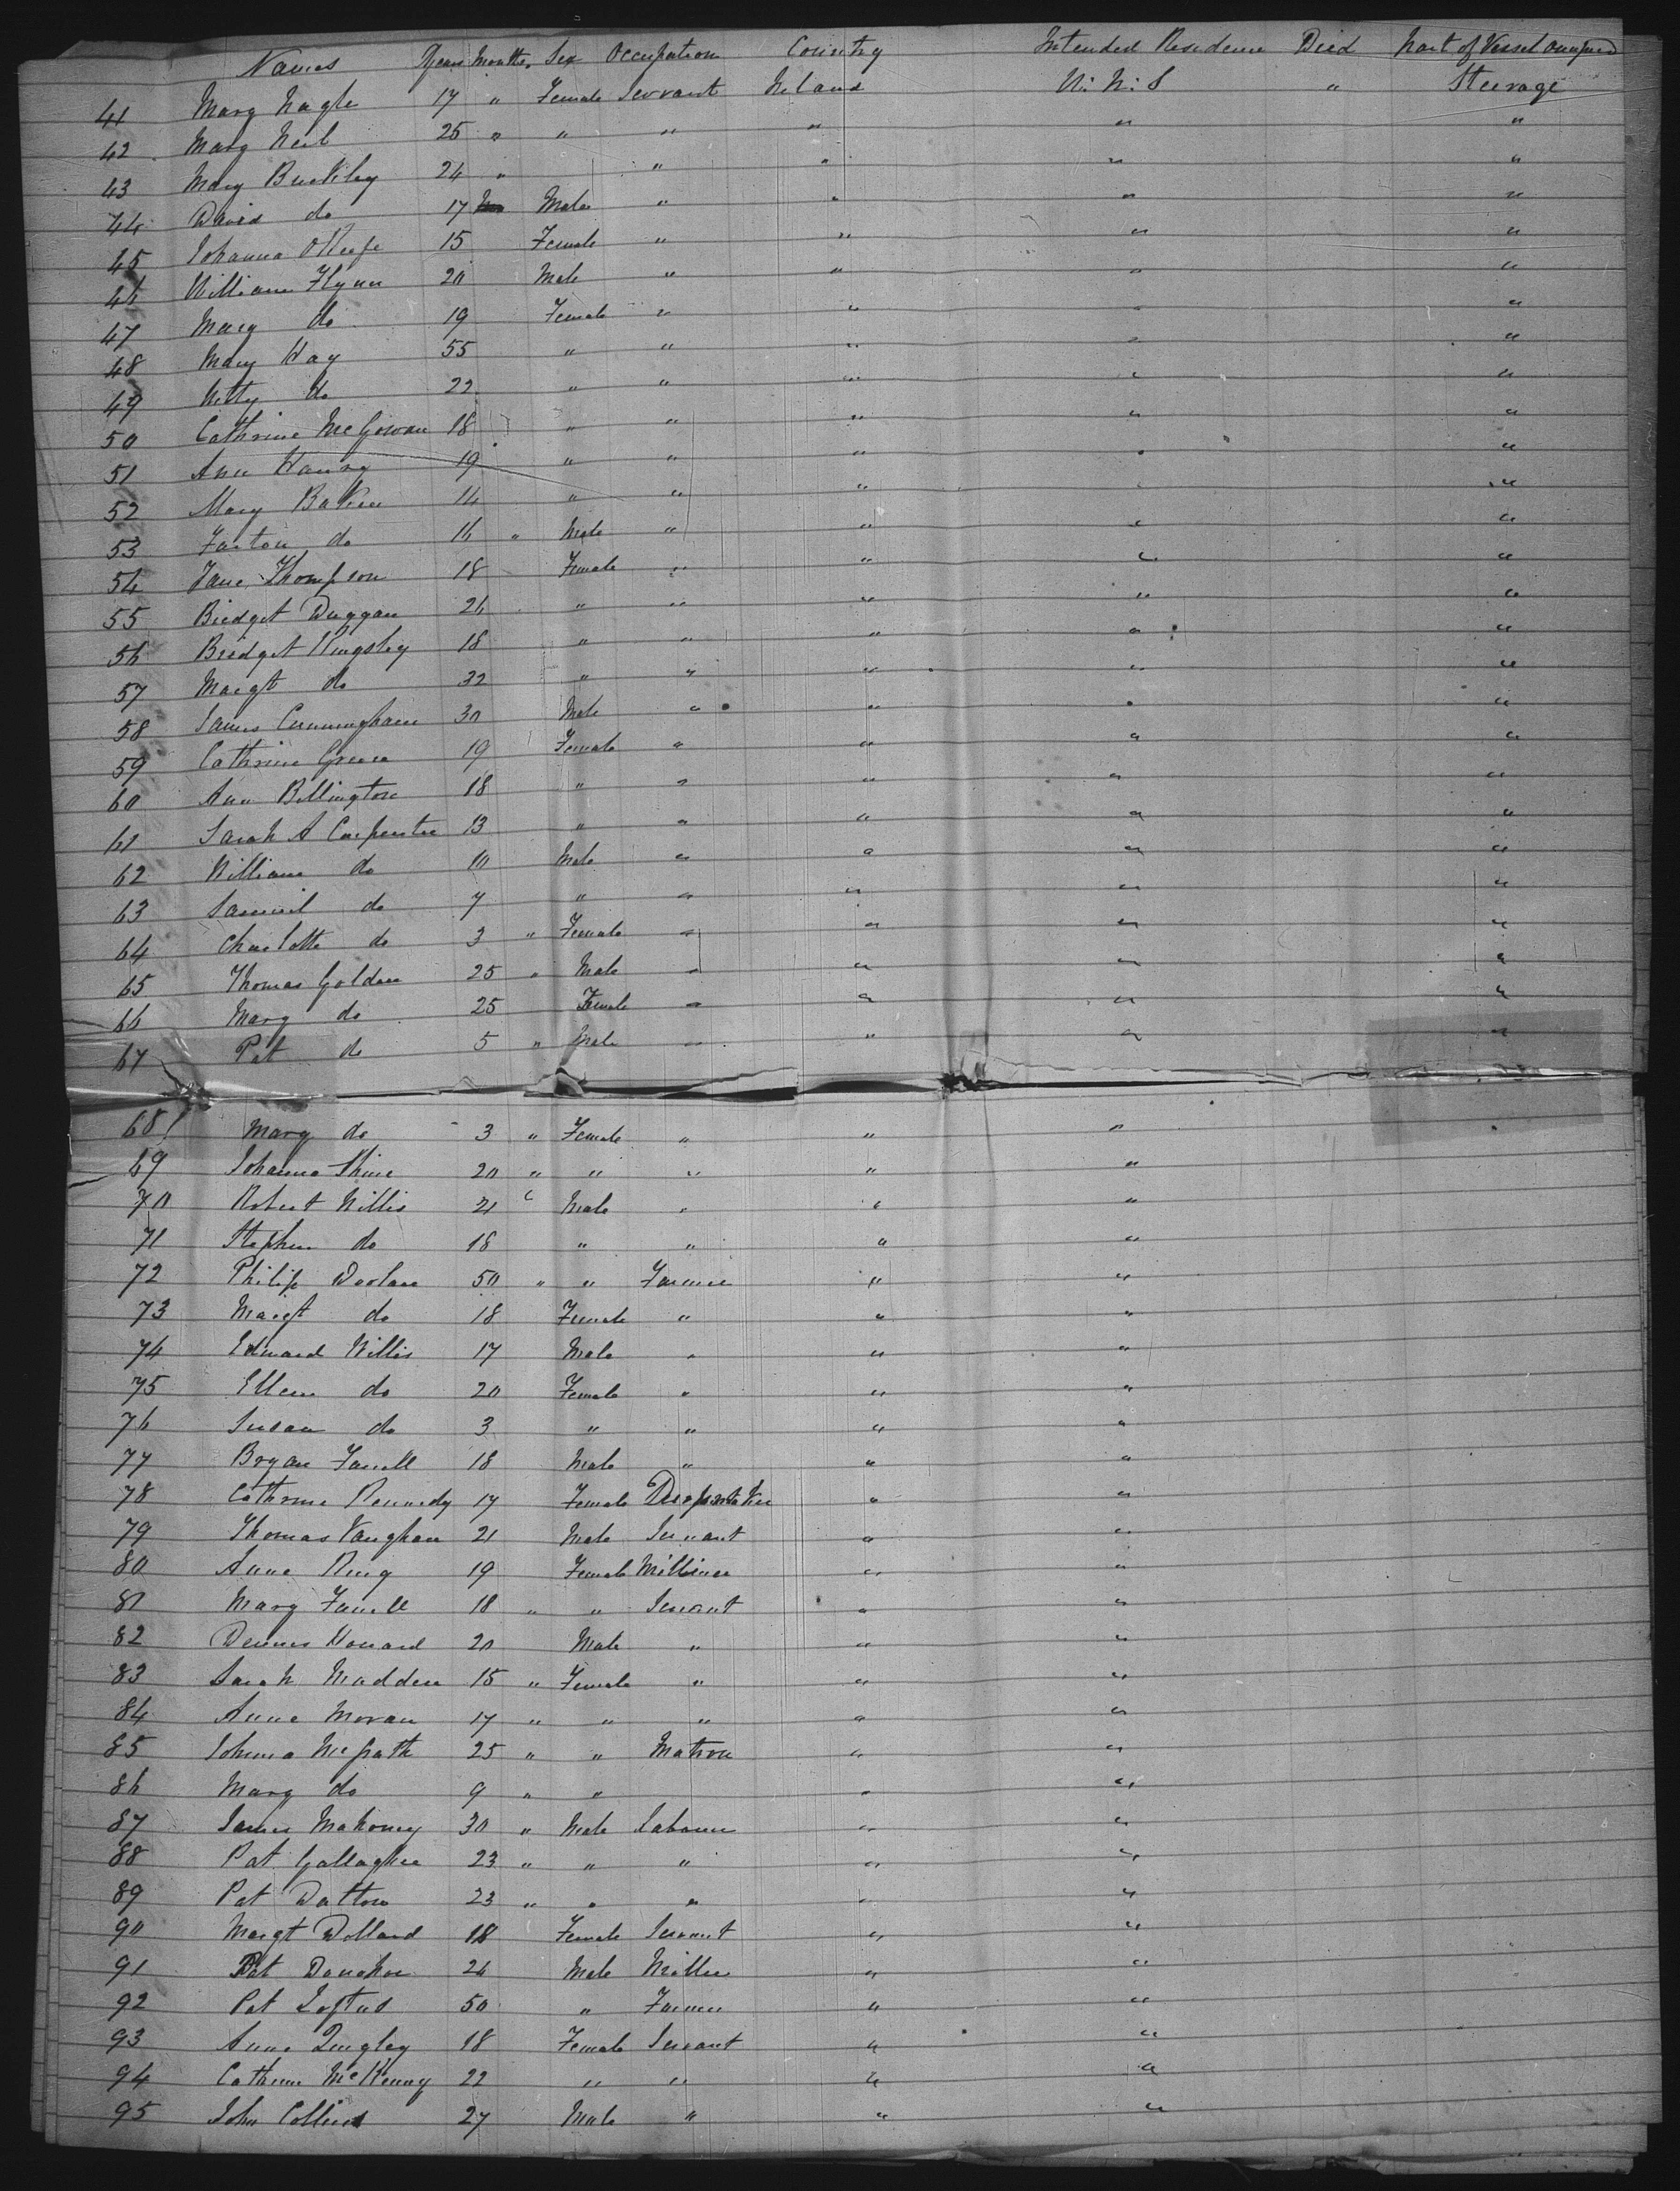 Names Years Months Sex Occupation Country Intended Residence Died Part of Vessel occupied
41 Mary Nagle 17 " Female Servant Ireland U. S. Steerage
42 Mary Neil 25 " " " " " "
43 Mary Buckley 24 " " " " "
44 David do 17 Male " " " "
45 Johanna OKeefe 15 Female " " " "
46 William Flynn 20 Male " " " "
47 Mary do 19 Female " " " "
48 Mary Hay 55 " " " " "
49 Kitty do 22 " " " " "
50 Cathrine McGowan 18 " " " " "
51 Ann 19 " " " " "
52 Mary Baker 14 " " " " "
53 do 16 " Male " " " "
54 Jane Thompson 18 Female " " " "
55 Bridget Duggan 24 " " " " "
56 Bridget Kingsley 18 " " " " "
57 Margt do 32 " " " " "
58 James Cunningham 30 Male " " " "
59 Cathrine Green 19 Female " " " "
60 Ann Billington 18 " " " " "
61 Sarah A Carpenter 13 " " " " "
62 William do 10 Male " " " "
63 Samuel do 7 " " " " "
64 Charlotte do 3 " Female " " " "
65 Thomas Golden 25 " Male " " " "
66 Mary do 25 Female " " " "
67 Pat do 5 " Male " " " "
68 Mary do 3 " Female " " "
69 Johanna Shine 20 " " " " "
70 Robert Willis 21 " Male " " "
71 Stephen do 18 " " " "
72 Philip Doolan 50 " " Farmer " "
73 Margt do 18 Female " " "
74 Edward Willis 17 Male " " "
75 Ellen do 20 Female " " "
76 Susan do 3 " " " "
77 Bryan Farrell 18 Male " " "
78 Cathrine Kennedy 17 Female " "
79 Thomas Vaughan 21 Male Servant " "
80 Anne King 19 Female Milliner " "
81 Mary Farrell 18 " " Servant " "
82 Dennis Howard 20 Male " " "
83 Sarah Madden 15 " Female " " "
84 Anne Moran 17 " " " " "
85 Johanna McGrath 25 " " Matron " "
86 Mary do 9 " " " "
87 James Mahoney 30 " Male Labourer " "
88 Pat Gallagher 23 " " " " "
89 Pat Dalton 23 " " " " "
90 Margt Dolland 18 Female Servant " "
91 Pat Donohoe 24 Male Miller " "
92 Pat Loftus 50 " Farmer " "
93 Anne Quigley 18 Female Servant " "
94 Cathrine McKenny 22 " " " "
95 John Collins 27 Male " " "